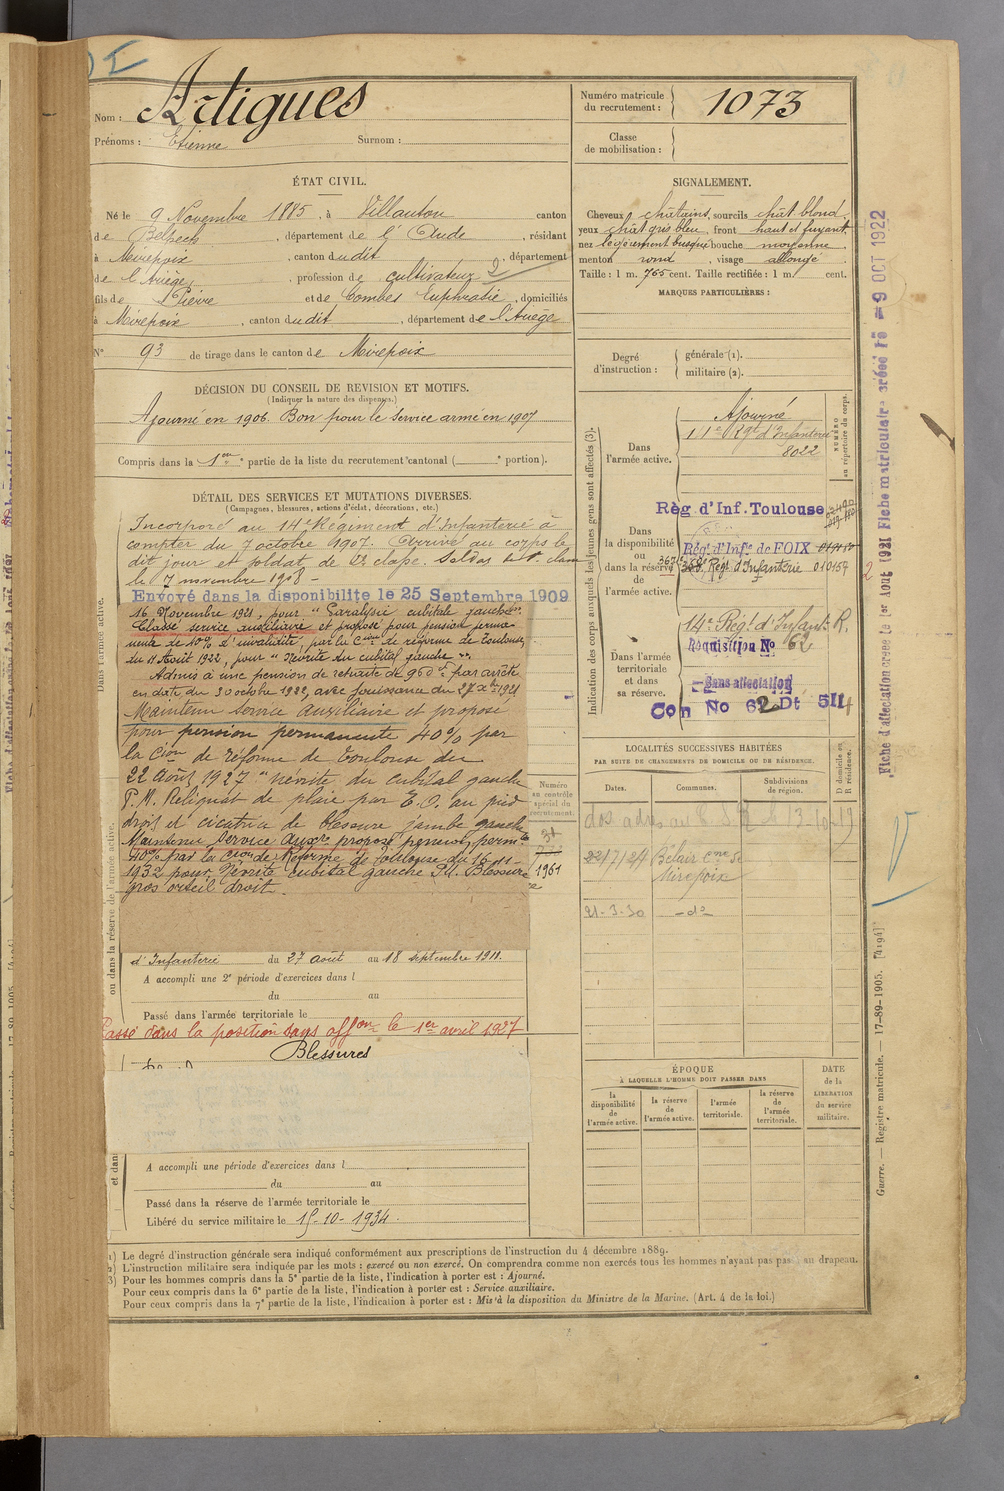 Nom : Artigues
Prénoms : Etienne Surnom :
ÉTAT CIVIL.
Né le 9 Novembre 1885, à Villautou canton
de Belpech, département de l'Aude, résidant
à Mirepoix, canton dudit, département
de l'Ariège, profession de cultivateur
fils de Pierre et de Combes Euphrasie, domiciliés
à Mirepoix, canton dudit, département de l'Ariège
N° 93 de tirage dans le canton de Mirepoix
DÉCISION DU CONSEIL DE REVISION ET MOTIFS.
(Indiquer la nature des dispenses.)
Ajourné en 1906. Bon pour le service armé en 1907
Compris dans la 1ere partie de la liste du recrutement cantonal ( e portion).
DÉTAIL DES SERVICES ET MUTATIONS DIVERSES.
(Campagnes, blessures, actions d'éclat, décorations, etc.)
Incorporé au 14e Régiment d'Infanterie à
compter du 7 octobre 1907. Arrivé au corps le
dit jour et soldat de 2e classe. Soldat de 1e classe
le 7 novembre 1908 -
Envoyé dans la disponibilité le 25 Septembre 1909
16 Novembre 1921, pour "Paralysie cubitale gauche".
Classé service auxiliaire et proposé pour pension perma-
nente de 40% d'invalidité, par la Cion de réforme de Toulouse,
du 11 Août 1922, pour "Névrite du cubital gauche".
Admis à une pension de retraite de 960 f par arrêté
en date du 30 octobre 1922, avec jouissance du 27 Xbre 1921
Maintenu Service auxiliaire et proposé
pour pension permanente 40% par
la Cion de réforme de Toulouse du
22 Août 1927 "névrite du cubital gauche
P.M. Reliquat de plaie par E.O. au pied
droit et cicatrice de blessure jambe gauche
Maintenu service auxre proposé pension permte
40% par la Cion de Réforme de Toulouse du 16-11-
1932 pour Névrite cubital gauche P.M. Blessure
gros orteil droit.
d'Infanterie du 27 août au 18 septembre 1911.
A accompli une 2e période d'exercices dans l
du au
Passé dans l'armée territoriale le
Passé dans la position sans affon le 1er avril 1927
Blessures
A accompli une période d'exercices dans l
du au
Passé dans la réserve de l'armée territoriale le
Libéré du service militaire le 15-10-1934.
Dans l'armée active.
ou dans la réserve de l'armée active.
et dans
Numéro
au contrôle
spécial du
recrutement.
31
1961
Numéro matricule
du recrutement : 1073
Classe
de mobilisation :
SIGNALEMENT.
Cheveux châtains, sourcils chât blond
yeux chât gris bleu, front haut et fuyant
nez légèrement busqué bouche moyenne
menton rond, visage allongé
Taille : 1 m. 765 cent. Taille rectifiée : 1 m. cent.
MARQUES PARTICULIÈRES :
Degré
d'instruction :
générale (1).
militaire (2).
Indication des corps auxquels les jeunes gens sont affectés (3).
NUMÉRO
au répertoire du corps.
Dans
l'armée active.
Ajourné
14e Rgt d'Infanterie
8022
Dans
la disponibilité
ou
dans la réserve
de
l'armée active.
Règ d'Inf. Toulouse
Rég. d'Infie de FOIX
Régt d'Infanterie 010154
Dans l'armée
territoriale
et dans
sa réserve.
14e Régt d'Infant. R.
Réquisition No 62
Sans affectation
Con No 62 Dt 511
LOCALITÉS SUCCESSIVES HABITÉES
PAR SUITE DE CHANGEMENTS DE DOMICILE OU DE RÉSIDENCE.
Dates. Communes. Subdivisions
de région.
D domicile ou
R résidence.
22/7/24 Bélair Cne de
Mirepoix
21-3-30 -do-
ÉPOQUE
À LAQUELLE L'HOMME DOIT PASSER DANS
la
disponibilité
de
l'armée active.
la réserve
de
l'armée active.
l'armée
territoriale.
la réserve
de
l'armée
territoriale.
DATE
de la
LIBÉRATION
du service
militaire.
Fiche matriculaire créée le 9 OCT 1922
Fiche d'affectation créée le 1er Aout 1921
Guerre. — Registre matricule. — 17-89-1905. [4194]
1) Le degré d'instruction générale sera indiqué conformément aux prescriptions de l'instruction du 4 décembre 1889.
2) L'instruction militaire sera indiquée par les mots : exercé ou non exercé. On comprendra comme non exercés tous les hommes n'ayant pas passé au drapeau.
3) Pour les hommes compris dans la 5e partie de la liste, l'indication à porter est : Ajourné.
Pour ceux compris dans la 6e partie de la liste, l'indication à porter est : Service auxiliaire.
Pour ceux compris dans la 7e partie de la liste, l'indication à porter est : Mis à la disposition du Ministre de la Marine. (Art. 4 de la loi.)